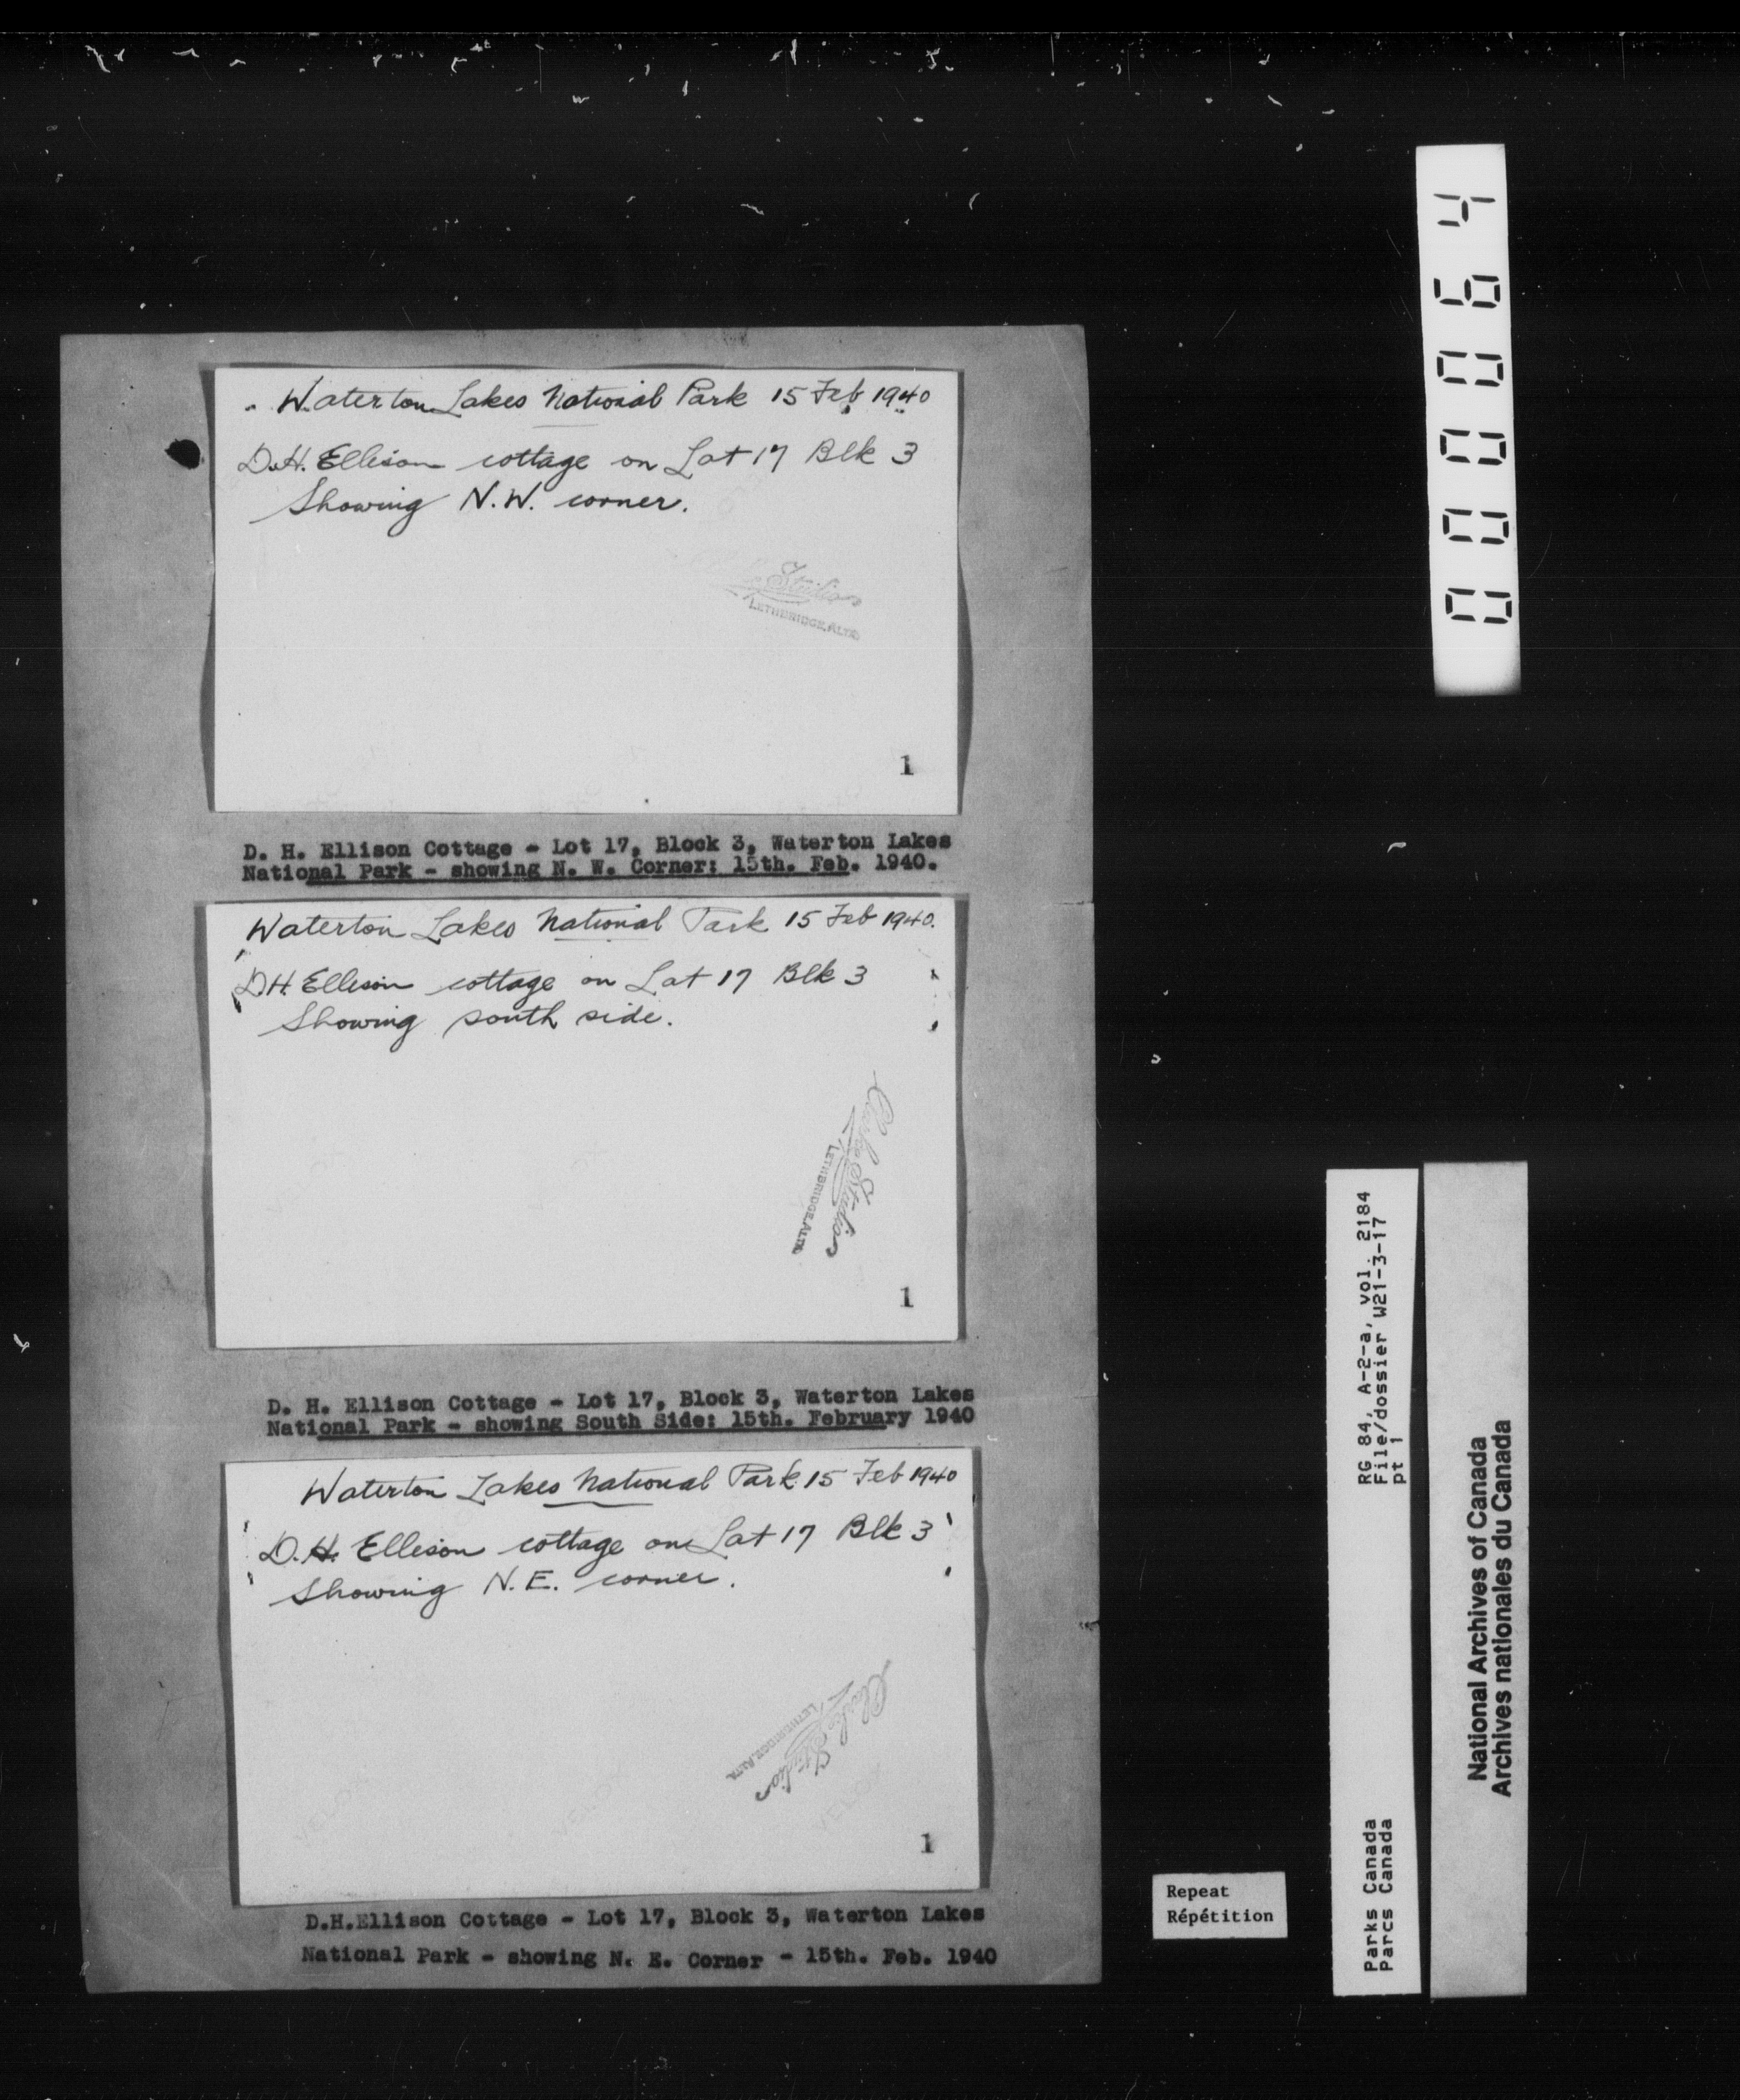 Waterton Lakes National Park 15 Feb 1940
D.H. Ellison cottage on Lot 17 Blk 3
Showing N.W. corner.
Studio
LETHBRIDGE, ALTA
1
D. H. Ellison Cottage - Lot 17, Block 3, Waterton Lakes
National Park - showing N. W. Corner: 15th. Feb. 1940.
Waterton Lakes National Park 15 Feb 1940.
D.H. Ellison cottage on Lot 17 Blk 3
Showing south side.
Clarke Studio
LETHBRIDGE, ALTA
1
D. H. Ellison Cottage - Lot 17, Block 3, Waterton Lakes
National Park - showing South Side: 15th. February 1940
Waterton Lakes National Park 15 Feb 1940
D.H. Ellison cottage on Lot 17 Blk 3
Showing N.E. corner.
Clarke Studio
LETHBRIDGE, ALTA
VELOX
1
D.H.Ellison Cottage - Lot 17, Block 3, Waterton Lakes
National Park - showing N. E. Corner - 15th. Feb. 1940
000064
RG 84, A-2-a, vol. 2184
File/dossier W21-3-17
pt 1
Parks Canada
Parcs Canada
National Archives of Canada
Archives nationales du Canada
Repeat
Répétition